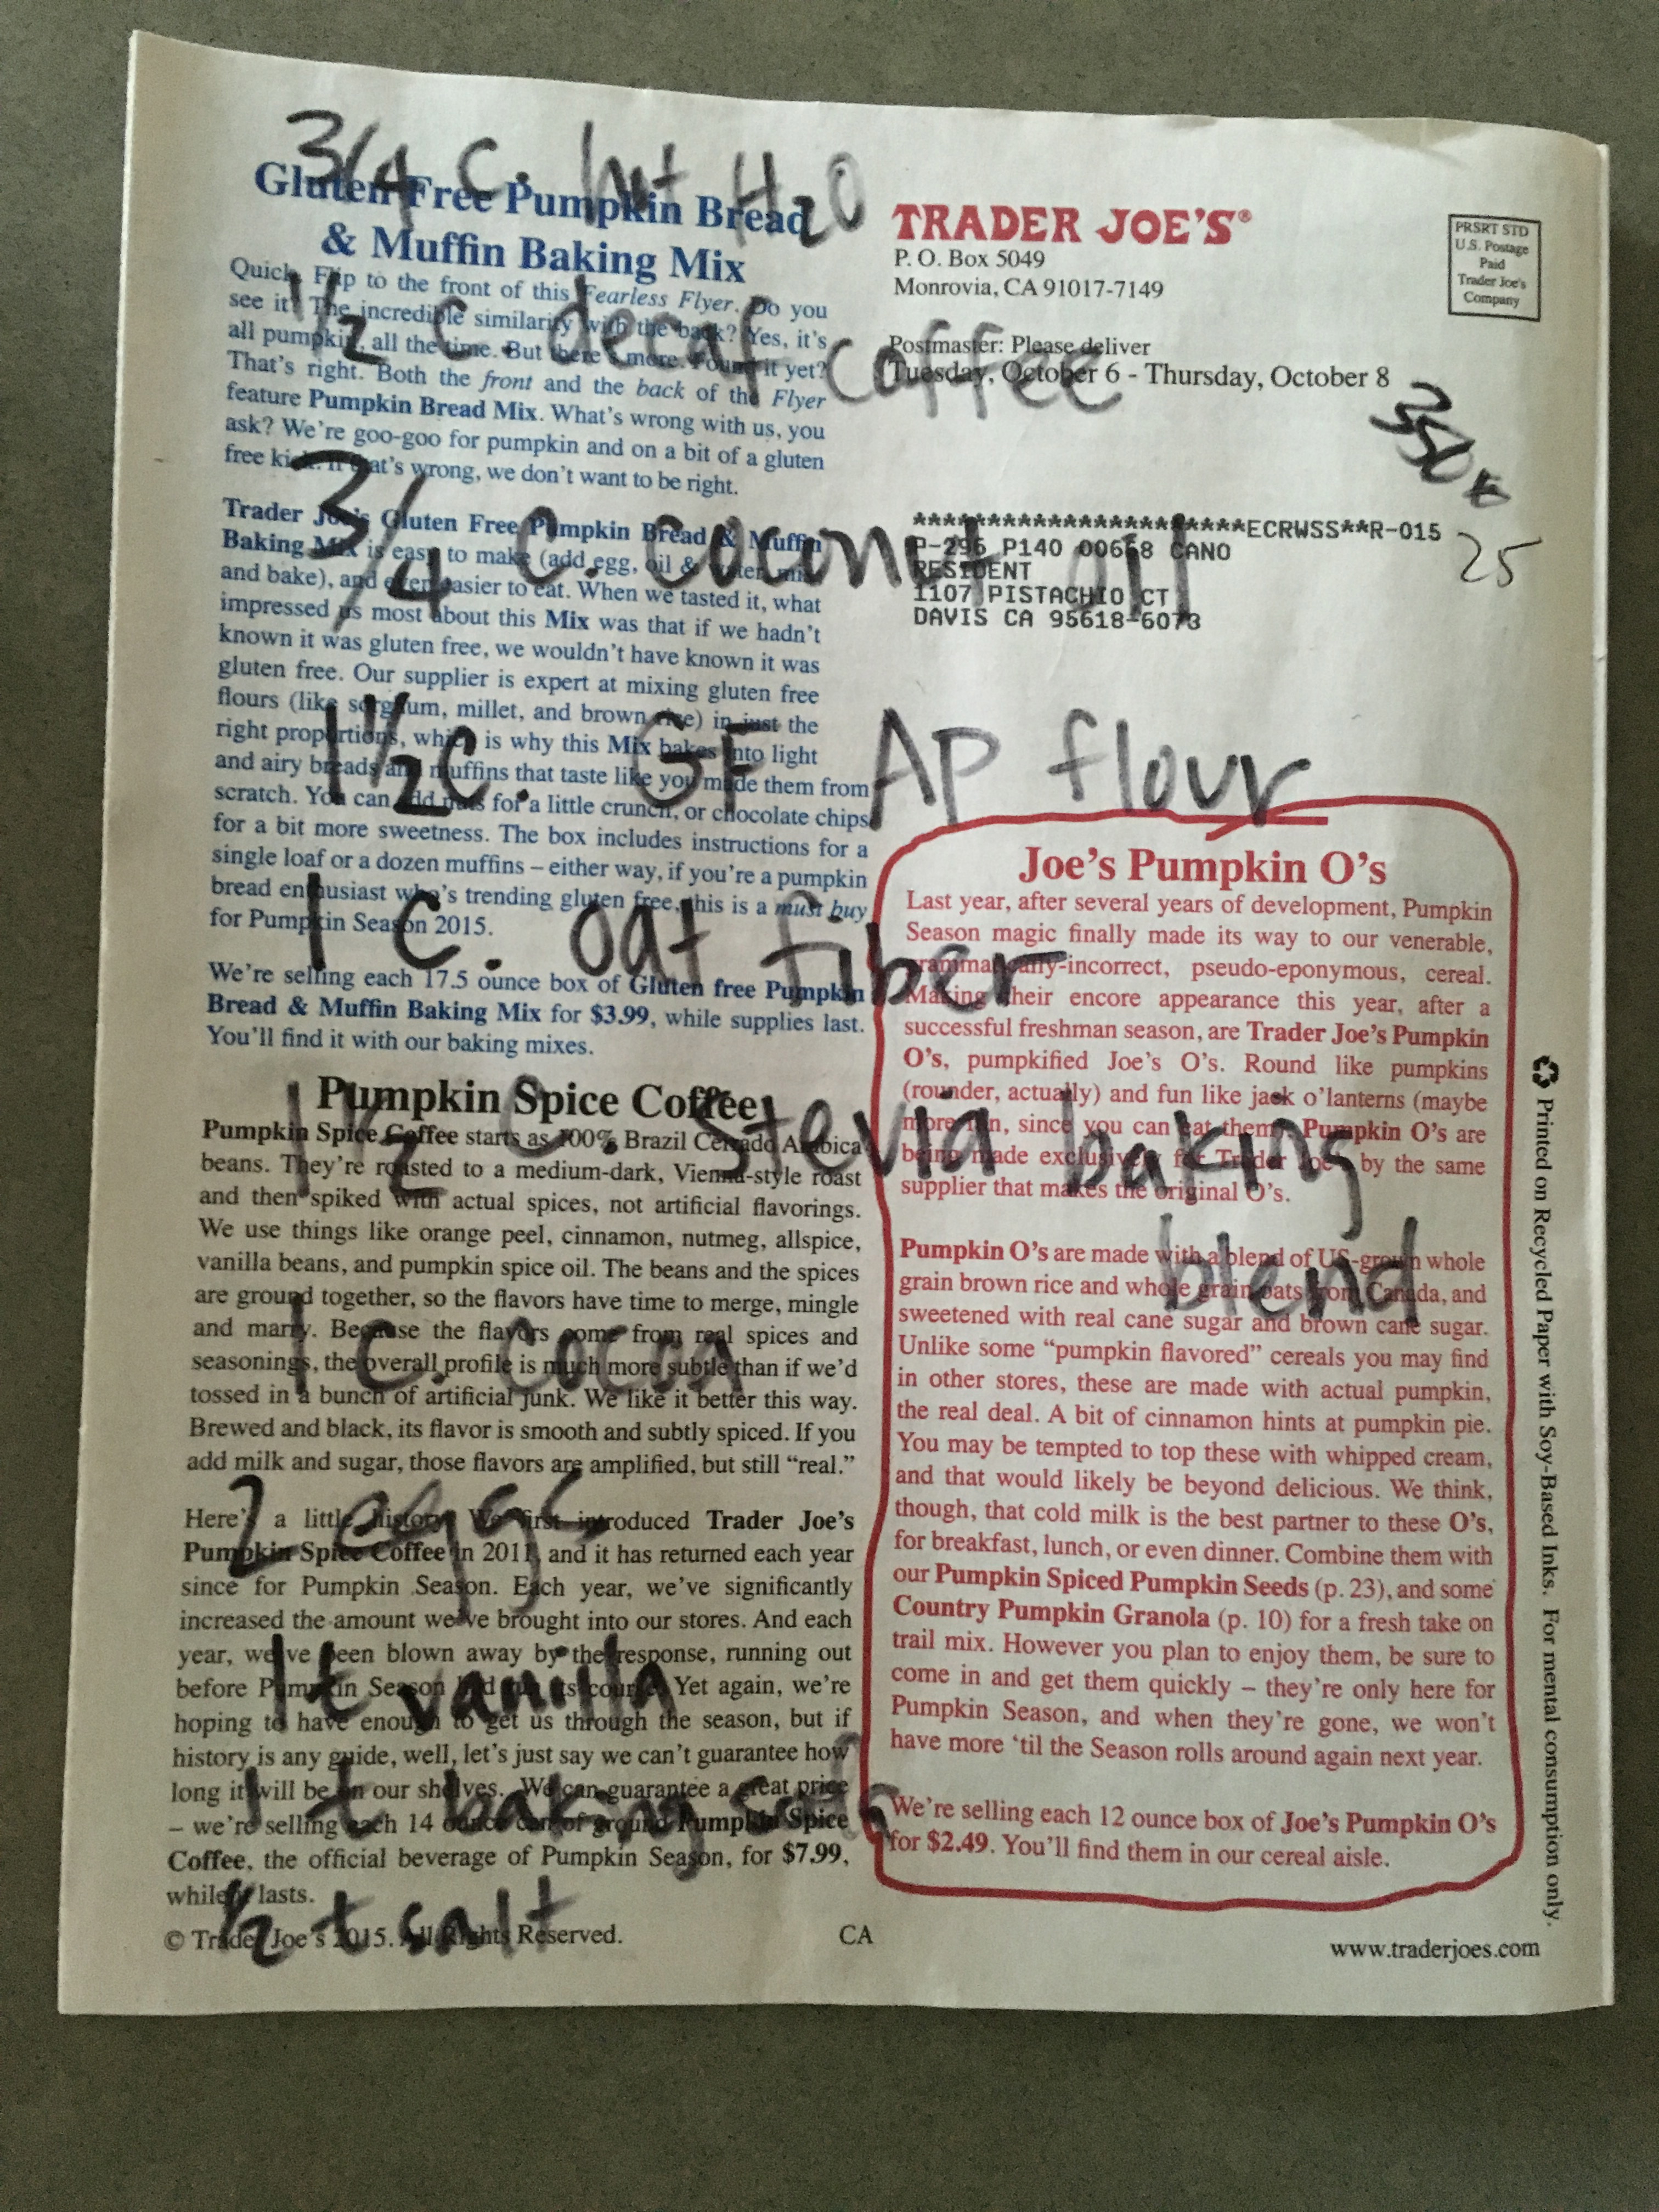 3/4 c. hot H2O
1/2 c. decaf coffee
3/4 c. coconut oil
350 x
25
1 1/2 c. GF AP flour
1 c. oat fiber
1 1/2 c. stevia baking
blend
1 c. cocoa
2 eggs
1 t vanilla
1 t baking soda
1/2 t salt
Gluten Free Pumpkin Bread
& Muffin Baking Mix
Quick. Flip to the front of this Fearless Flyer. Do you
see it? The incredible similarity with the back? Yes, it's
all pumpkin, all the time. But there's more. Found it yet?
That's right. Both the front and the back of the Flyer
feature Pumpkin Bread Mix. What's wrong with us, you
ask? We're goo-goo for pumpkin and on a bit of a gluten
free kick. If that's wrong, we don't want to be right.
Trader Joe's Gluten Free Pumpkin Bread & Muffin
Baking Mix is easy to make (add egg, oil & water, mix
and bake), and even easier to eat. When we tasted it, what
impressed us most about this Mix was that if we hadn't
known it was gluten free, we wouldn't have known it was
gluten free. Our supplier is expert at mixing gluten free
flours (like sorghum, millet, and brown rice) in just the
right proportions, which is why this Mix bakes into light
and airy breads and muffins that taste like you made them from
scratch. You can add nuts for a little crunch, or chocolate chips
for a bit more sweetness. The box includes instructions for a
single loaf or a dozen muffins – either way, if you're a pumpkin
bread enthusiast who's trending gluten free, this is a must buy
for Pumpkin Season 2015.
We're selling each 17.5 ounce box of Gluten free Pumpkin
Bread & Muffin Baking Mix for $3.99, while supplies last.
You'll find it with our baking mixes.
Pumpkin Spice Coffee
Pumpkin Spice Coffee starts as 100% Brazil Cerrado Arabica
beans. They're roasted to a medium-dark, Vienna-style roast
and then spiked with actual spices, not artificial flavorings.
We use things like orange peel, cinnamon, nutmeg, allspice,
vanilla beans, and pumpkin spice oil. The beans and the spices
are ground together, so the flavors have time to merge, mingle
and marry. Because the flavors come from real spices and
seasonings, the overall profile is much more subtle than if we'd
tossed in a bunch of artificial junk. We like it better this way.
Brewed and black, its flavor is smooth and subtly spiced. If you
add milk and sugar, those flavors are amplified, but still “real.”
Here's a little history. We first introduced Trader Joe's
Pumpkin Spice Coffee in 2011, and it has returned each year
since for Pumpkin Season. Each year, we've significantly
increased the amount we've brought into our stores. And each
year, we've been blown away by the response, running out
before Pumpkin Season had run its course. Yet again, we're
hoping to have enough to get us through the season, but if
history is any guide, well, let's just say we can't guarantee how
long it will be on our shelves. We can guarantee a great price
– we're selling each 14 ounce can of ground Pumpkin Spice
Coffee, the official beverage of Pumpkin Season, for $7.99,
while it lasts.
© Trader Joe's 2015. All Rights Reserved.
CA
TRADER JOE'S®
P. O. Box 5049
Monrovia, CA 91017-7149
PRSRT STD
U.S. Postage
Paid
Trader Joe's
Company
Postmaster: Please deliver
Tuesday, October 6 - Thursday, October 8
**********************ECRWSS**R-015
P-296 P140 00668 CANO
RESIDENT
1107 PISTACHIO CT
DAVIS CA 95618-6073
Joe's Pumpkin O's
Last year, after several years of development, Pumpkin
Season magic finally made its way to our venerable,
grammatically-incorrect, pseudo-eponymous, cereal.
Making their encore appearance this year, after a
successful freshman season, are Trader Joe's Pumpkin
O's, pumpkified Joe's O's. Round like pumpkins
(rounder, actually) and fun like jack o'lanterns (maybe
more fun, since you can eat them), Pumpkin O's are
being made exclusively for Trader Joe's by the same
supplier that makes the original O's.
Pumpkin O's are made with a blend of US-grown whole
grain brown rice and whole grain oats from Canada, and
sweetened with real cane sugar and brown cane sugar.
Unlike some “pumpkin flavored” cereals you may find
in other stores, these are made with actual pumpkin,
the real deal. A bit of cinnamon hints at pumpkin pie.
You may be tempted to top these with whipped cream,
and that would likely be beyond delicious. We think,
though, that cold milk is the best partner to these O's,
for breakfast, lunch, or even dinner. Combine them with
our Pumpkin Spiced Pumpkin Seeds (p. 23), and some
Country Pumpkin Granola (p. 10) for a fresh take on
trail mix. However you plan to enjoy them, be sure to
come in and get them quickly – they're only here for
Pumpkin Season, and when they're gone, we won't
have more 'til the Season rolls around again next year.
We're selling each 12 ounce box of Joe's Pumpkin O's
for $2.49. You'll find them in our cereal aisle.
www.traderjoes.com
Printed on Recycled Paper with Soy-Based Inks. For mental consumption only.